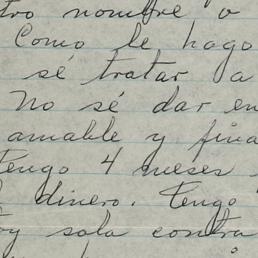 tro nombre o
Como le hago
sé tratar a
No sé dar en
amable y fina
Tengo 4 meses
dinero. Tengo
oy sola contra